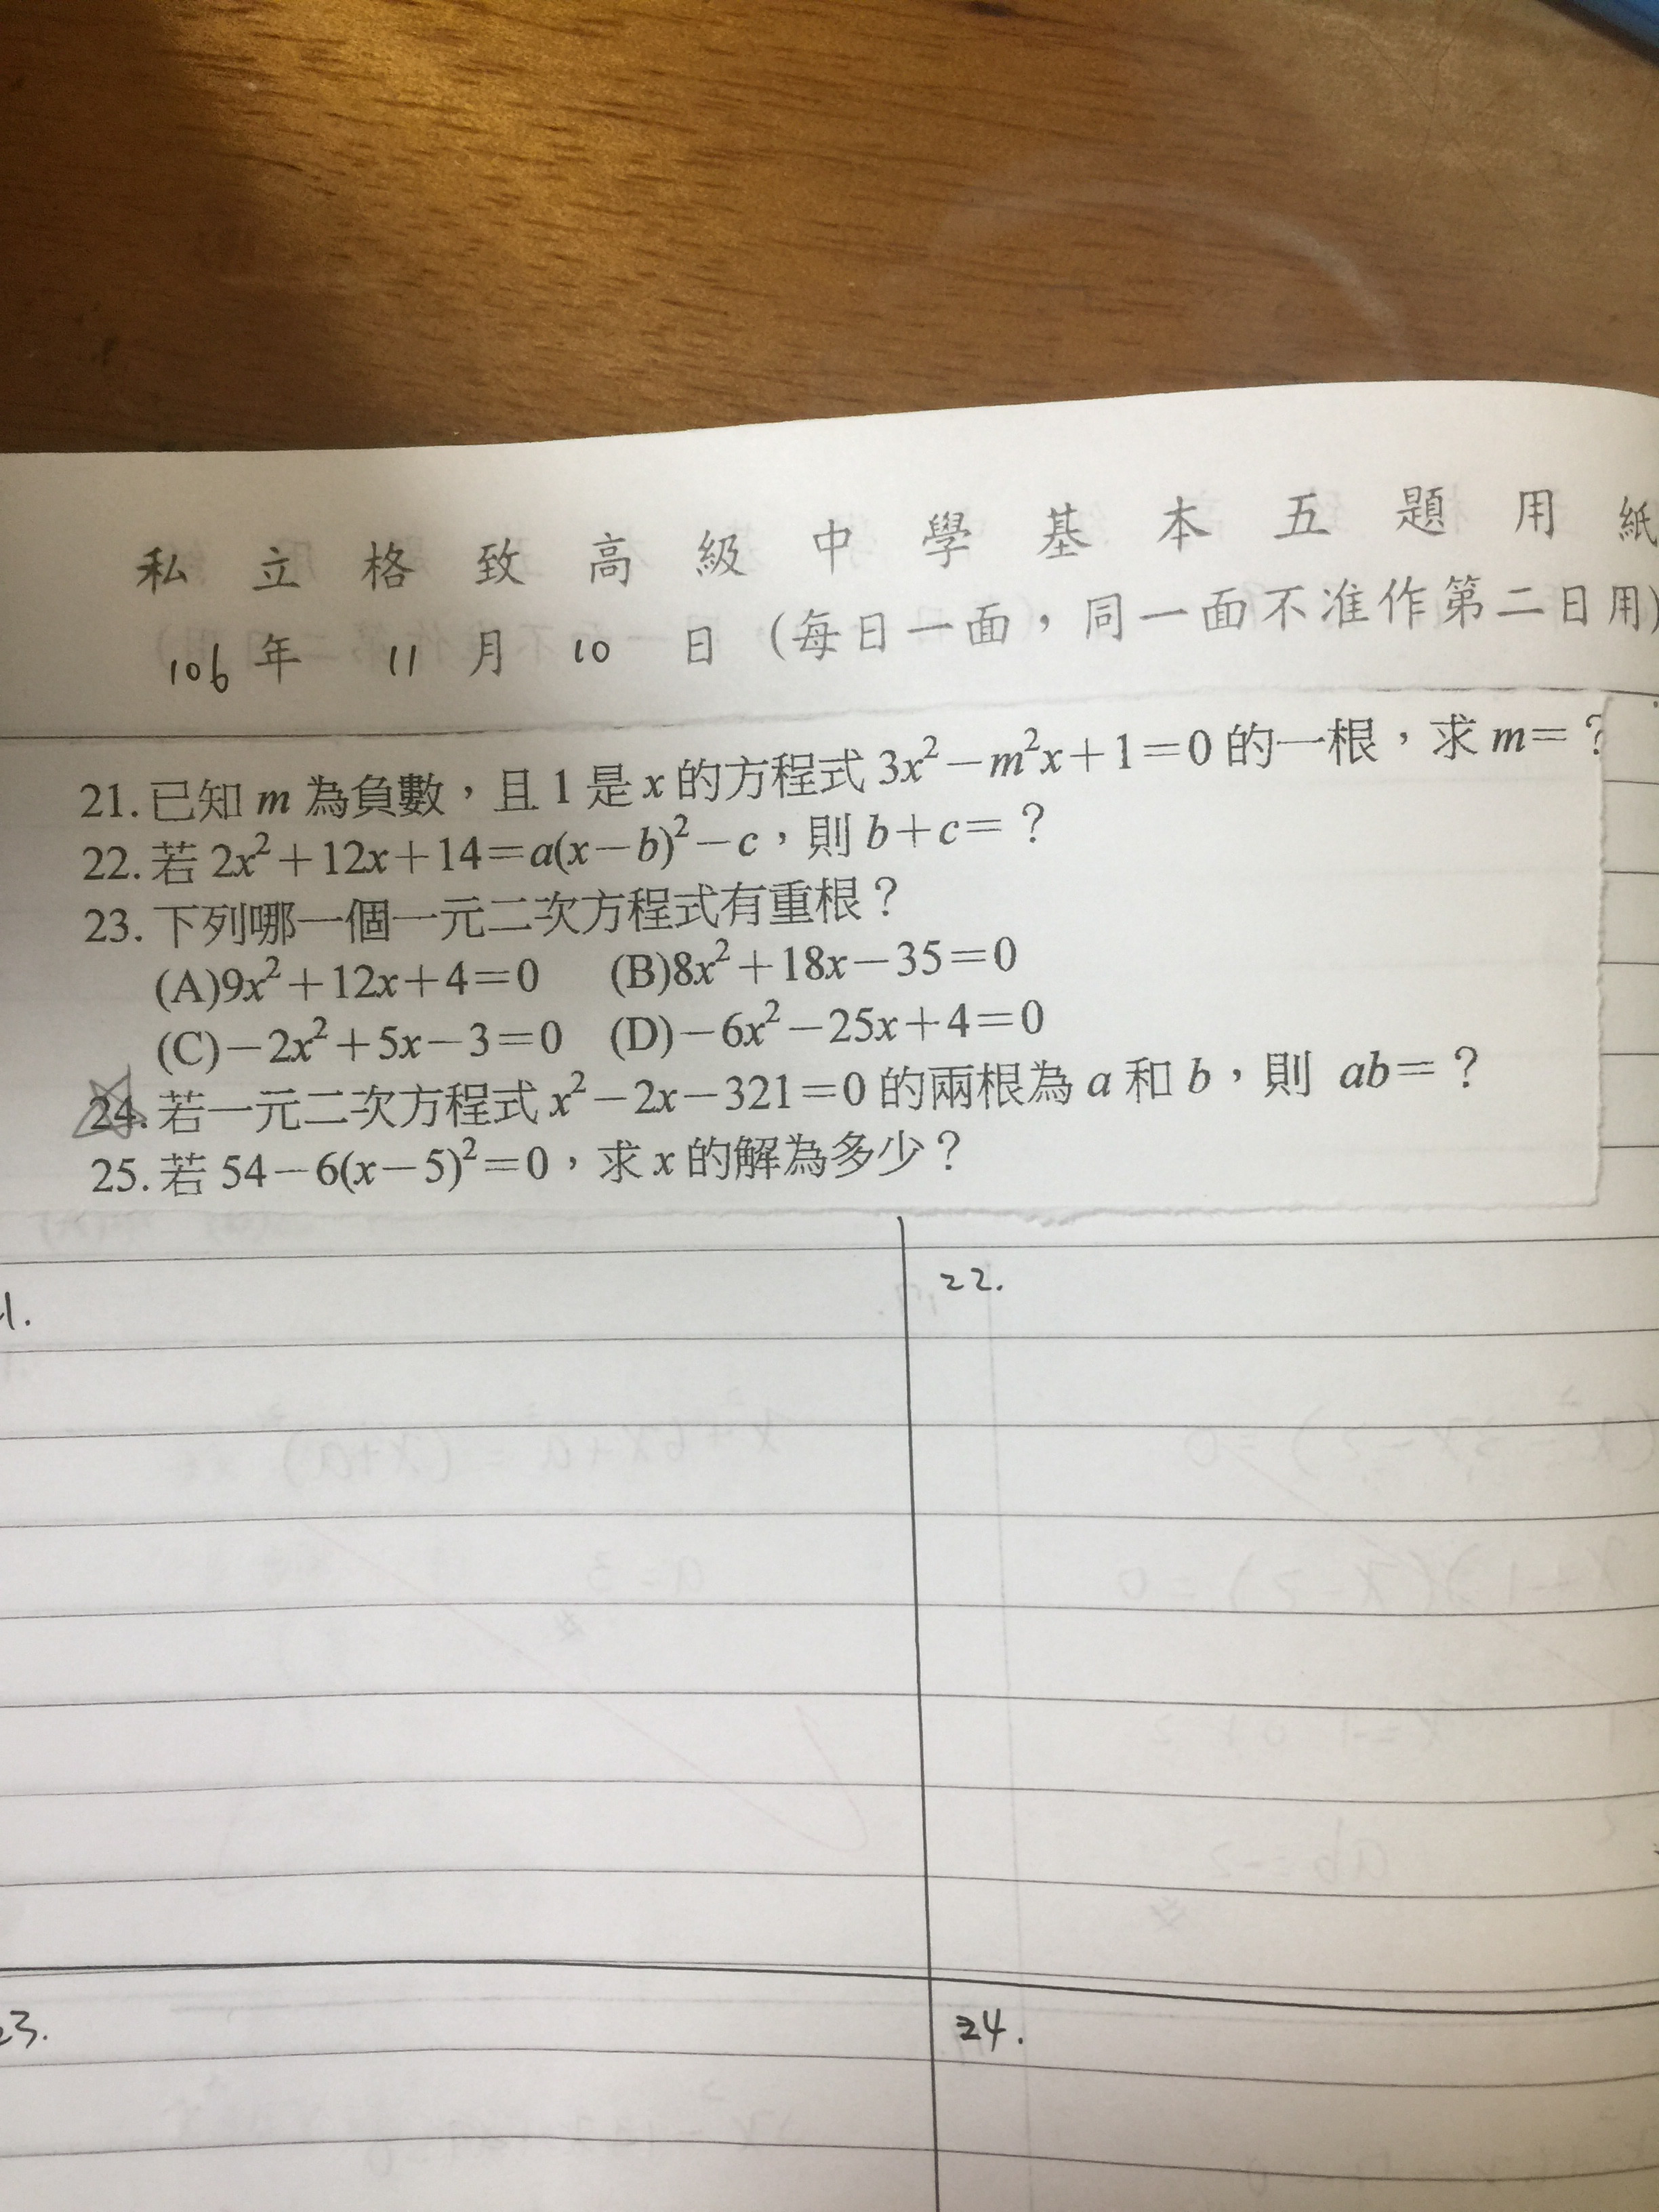 私立格致高級中學基本五題用紙
106年 11月 10日(每日一面,同一面不准作第二日用)
21.已知 m 為負數,且 1 是 x 的方程式 3x²-m²x+1=0 的一根,求 m=?
22.若 2x²+12x+14=a(x-b)²-c,則 b+c=?
23.下列哪一個一元二次方程式有重根?
(A)9x²+12x+4=0 (B)8x²+18x-35=0
(C)-2x²+5x-3=0 (D)-6x²-25x+4=0
24.若一元二次方程式 x²-2x-321=0 的兩根為 a 和 b,則 ab=?
25.若 54-6(x-5)²=0,求 x 的解為多少?
1.
22.
23.
24.